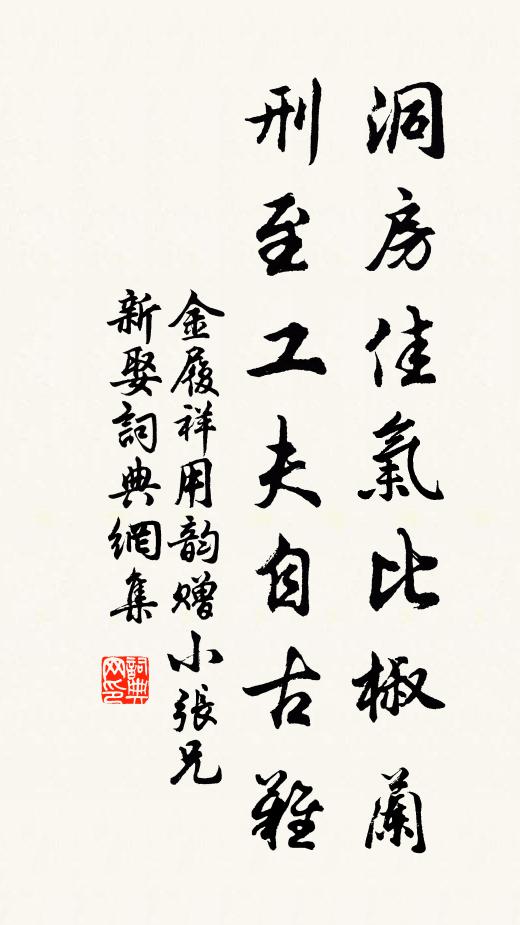 洞房佳氣比椒蘭
刑至工夫自古難
金履祥用韵贈小張兄
新娶詞典網集
詞典网印